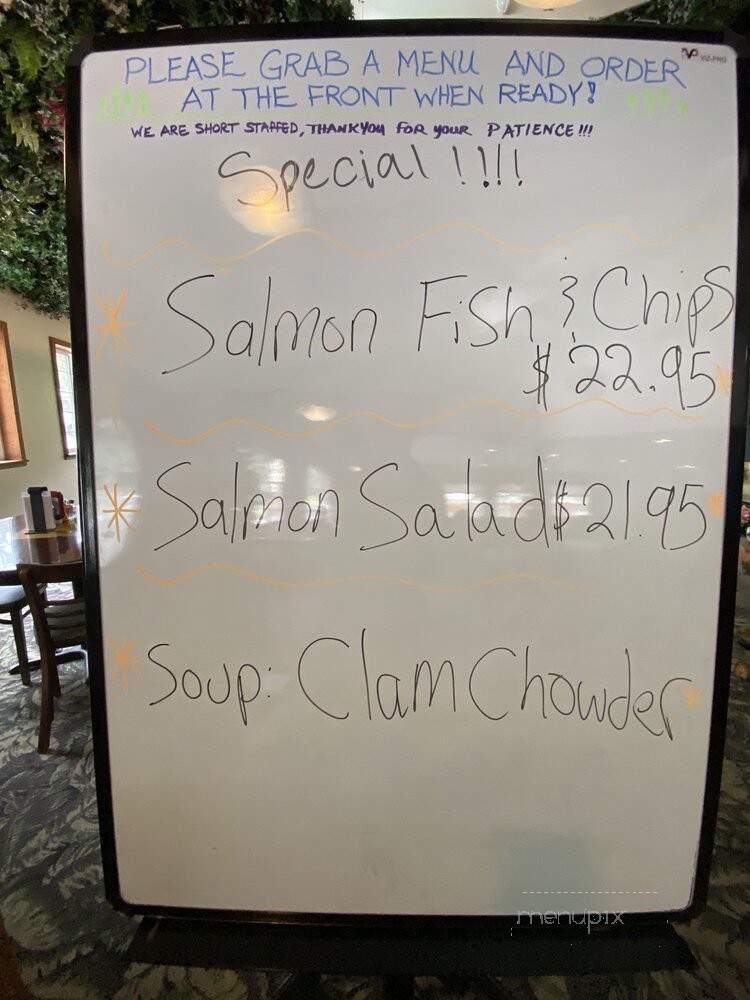 PLEASE GRAB A MENU AND ORDER
AT THE FRONT WHEN READY!
WE ARE SHORT STAFFED, THANKYOU FOR YOUR PATIENCE!!!
Special !!!!
Salmon Fish & Chips
$22.95
Salmon Salad $21.95
Soup: Clam Chowder
VIZ-PRO
menupix